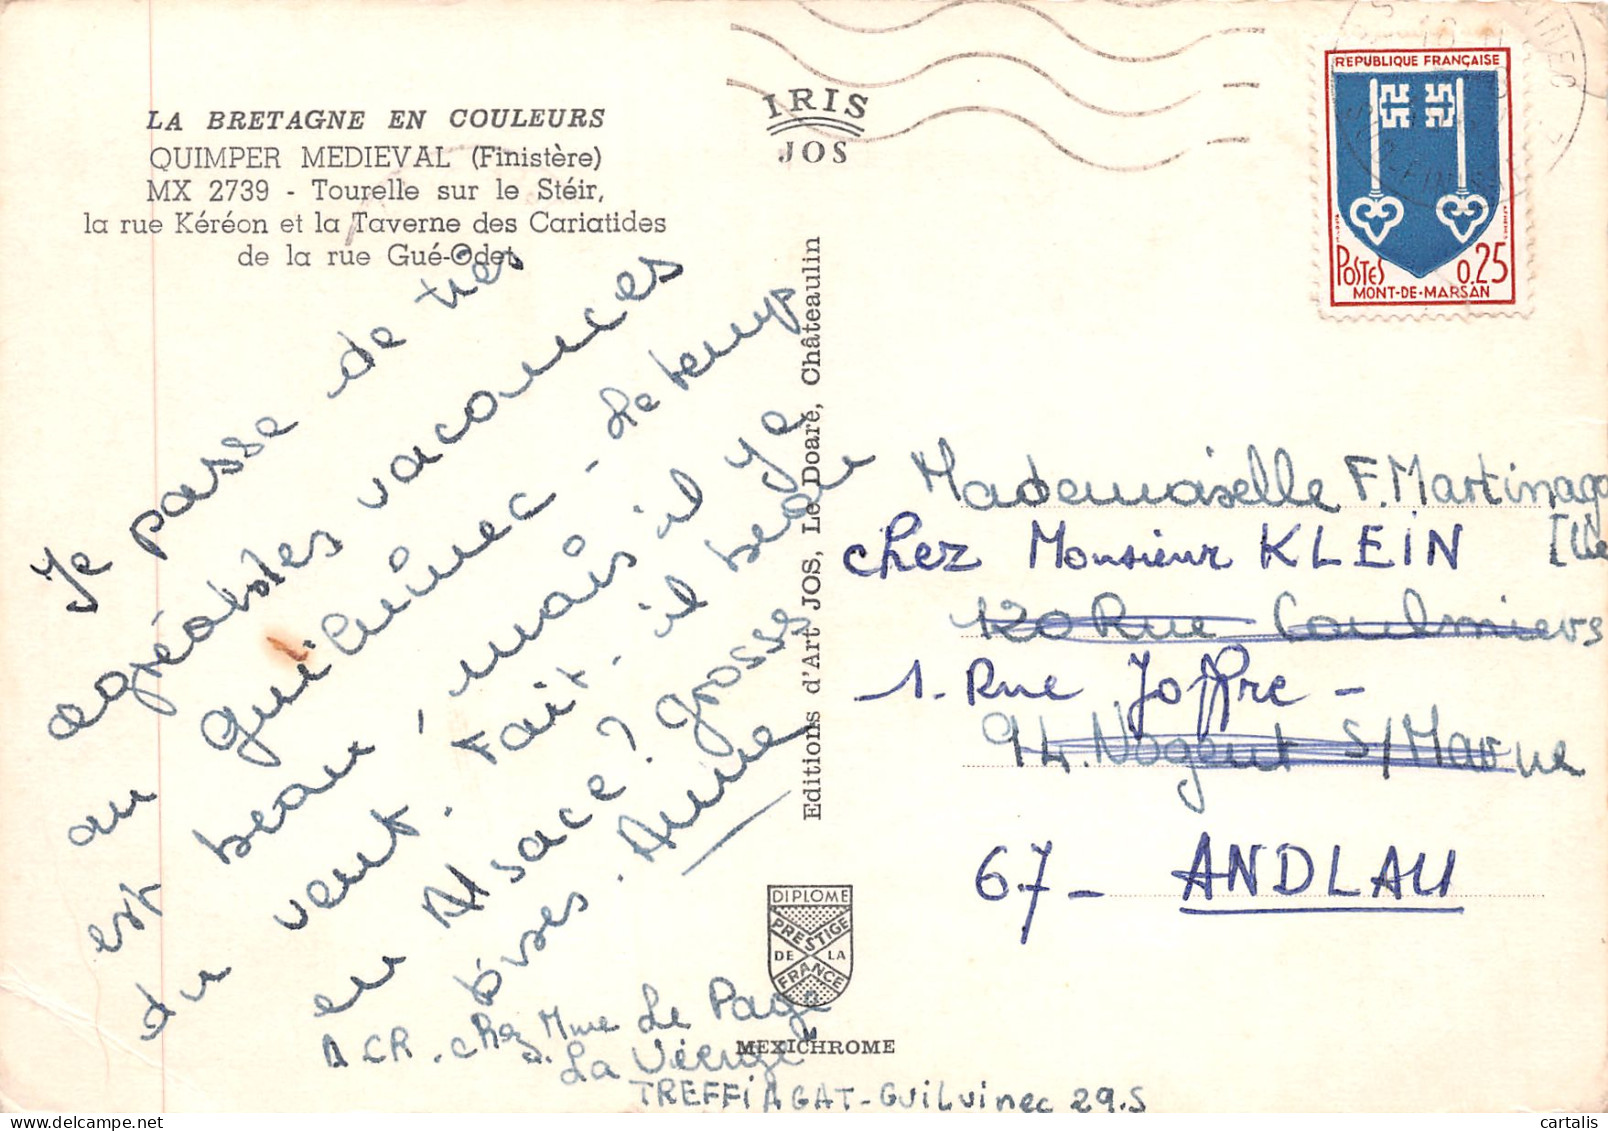 LA BRETAGNE EN COULEURS
QUIMPER MEDIEVAL (Finistère)
MX 2739 - Tourelle sur le Stéir,
la rue Kéréon et la Taverne des Cariatides
de la rue Gué-Odet
IRIS
JOS
REPUBLIQUE FRANÇAISE
POSTES
0.25
MONT-DE-MARSAN
Je passe de très
agréables vacances
au Guilvinec - Le temps
est beau, mais il y a
du vent. Fait-il beau
en Alsace? grosses
bises. Anne
A CR. chez Mme Le Page
La Vierge
TREFFIAGAT-Guilvinec 29.S
Editions d'Art JOS, Le Doaré, Châteaulin
Mademoiselle F. Martinago
chez Monsieur KLEIN
120 Rue Coulmiers
1. Rue Joffre -
94. Nogent S/Marne
67 - ANDLAU
DIPLOME
PRESTIGE
DE LA
FRANCE
MEXICHROME
cartalis